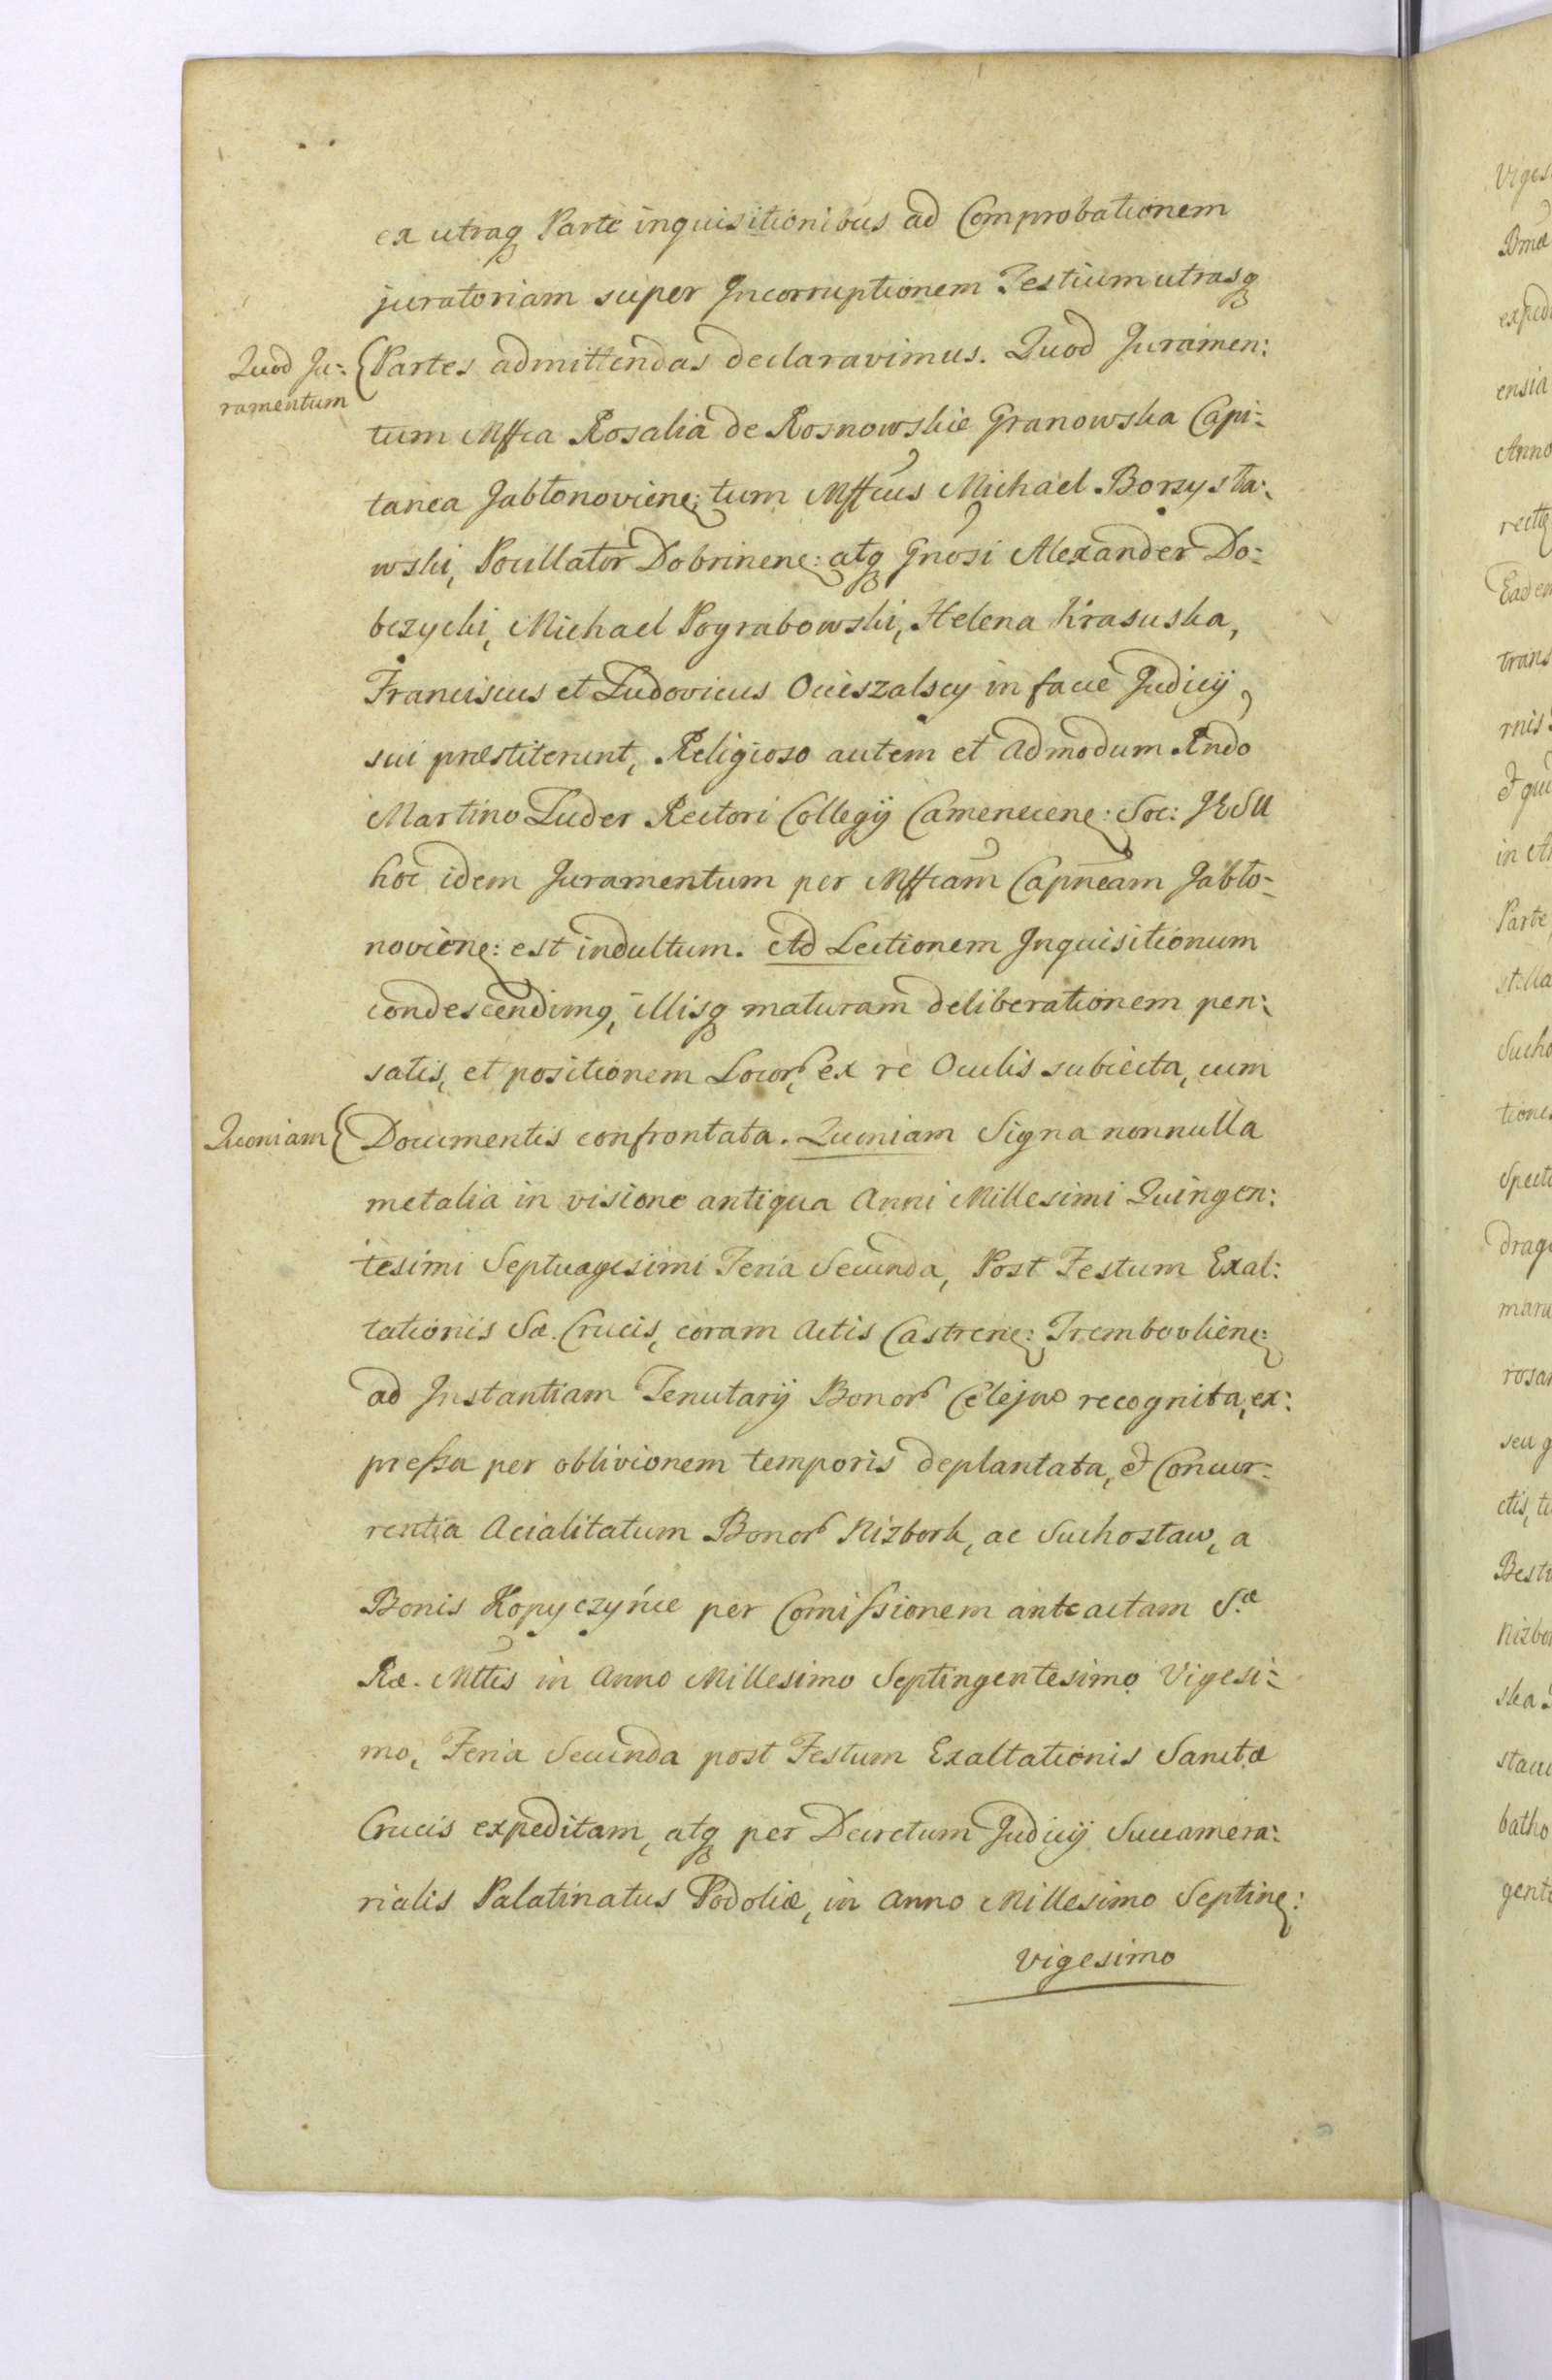 ex utraq Parte inquisitionibus ad Comprobationem
juratoriam super Incorruptionem Testium utrasq
Quod Ju:
ramentum
Partes admittendas declaravimus. Quod Juramen:
tum Mffca Rosalia de Rosnowskie Granowska Capi:
tanea Jabłonoviene: tum Mffcus Michael Borzysła:
wski, Pocillator Dobrinene: atq Gnosi Alexander Do:
bczycki, Michael Pograbowski, Helena Krasuska,
Franciscus et Ludovicus Ocieszalscy in facie Judicij,
sui præstiterunt, Religioso autem et admodum Rndo
Martino Luder Rectori Collegij Camenecene: Soc: JESU
hoc idem Juramentum per Mffcam Capneam Jabło:
noviene: est indultum. Ad Lectionem Inquisitionum
condescendimq, illisq maturam deliberationem pen:
satis, et positionem Locor, ex re Oculis subiecta, cum
Quoniam
Documentis confrontata. Quoniam Signa nonnulla
metalia in visione antiqua Anni Millesimi Quingen:
tesimi Septuagesimi Feria Secunda, Post Festum Exal:
tationis Sæ. Crucis, coram Actis Castrene: Trembovliene:
ad Instantiam Tenutarij Bonor Celejow recognita, ex:
pressa per oblivionem temporis deplantata, et Concur:
rentia Acialitatum Bonor Nizbork, ac Suchostaw, a
Bonis Kopyczyńce per Comissionem anteactam Sæ
Ræ. Mttis in Anno Millesimo Septingentesimo Vigesi:
mo, Feria Secunda post Festum Exaltationis Sanctæ
Crucis expeditam, atq per Decretum Judicij Succamera:
rialis Palatinatus Podoliæ, in Anno Millesimo Septing:
vigesimo